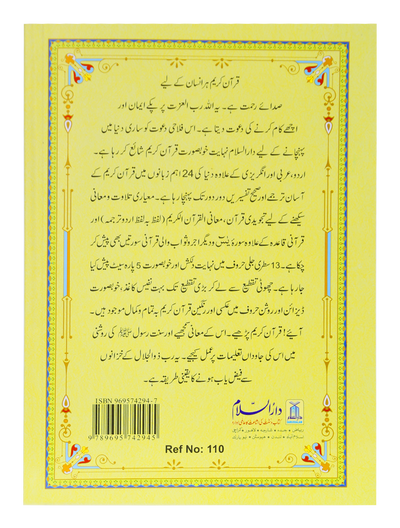 قرآن کریم ہر انسان کے لیے
صدائے رحمت ہے۔ یہ اللہ رب العزت پر پکے ایمان اور
اچھے کام کرنے کی دعوت دیتا ہے۔ اس فلاحی دعوت کو ساری دنیا میں
پہنچانے کے لیے دارالسلام نہایت خوبصورت قرآن کریم شائع کر رہا ہے۔
اردو، عربی اور انگریزی کے علاوہ دنیا کی 24 اہم زبانوں میں قرآن کریم کے
آسان ترجمے اور صحیح تفسیریں دور دور تک پہنچا رہا ہے۔ معیاری تلاوت و معانی
سیکھنے کے لیے تجویدی قرآن، معانی القرآن الکریم (لفظ بہ لفظ اردو ترجمہ) اور
قرآنی قاعدہ کے علاوہ سورۂ یٰسٓ و دیگر اجر و ثواب والی قرآنی سورتیں بھی پیش کر
چکا ہے۔ 13 سطری جلی حروف میں نہایت دلکش اور خوبصورت 5 پارہ سیٹ پیش کیا
جا رہا ہے۔ چھوٹی تقطیع سے لے کر بڑی تقطیع تک بہت نفیس کاغذ، خوبصورت
ڈیزائن اور روشن حروف میں عکسی اور رنگین قرآن کریم بہ تمام و کمال موجود ہیں۔
آیئے! قرآن کریم پڑھیے۔ اس کے معانی سمجھیے اور سنت رسول ﷺ کی روشنی
میں اس کی جاوداں تعلیمات پر عمل کیجیے۔ یہ رب ذوالجلال کے خزانوں
سے فیض یاب ہونے کا یقینی طریقہ ہے۔
ISBN 969574294-7
9 789695 742945
دارالسلام
Ref No: 110